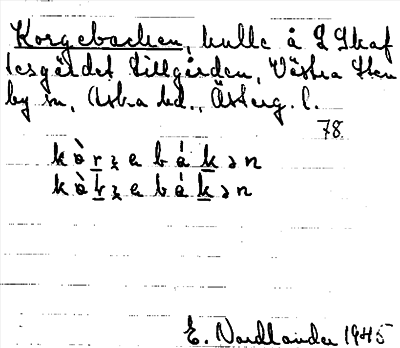 Korgebacken, kulle å L Skaf
tesgärdet Lillgården, Västra Sten
by sn, Aska hd., Österg. l.
78
kὰrʒabákən
E. Nordlander 1945